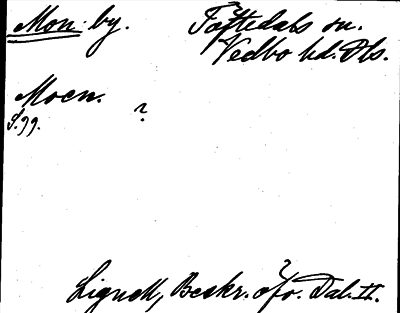 Mon by. Töftedals sn.
Vedbo hd. Dls.
Moen. ?
S. 99.
Lignell, Beskr. öfv. Dal. II.